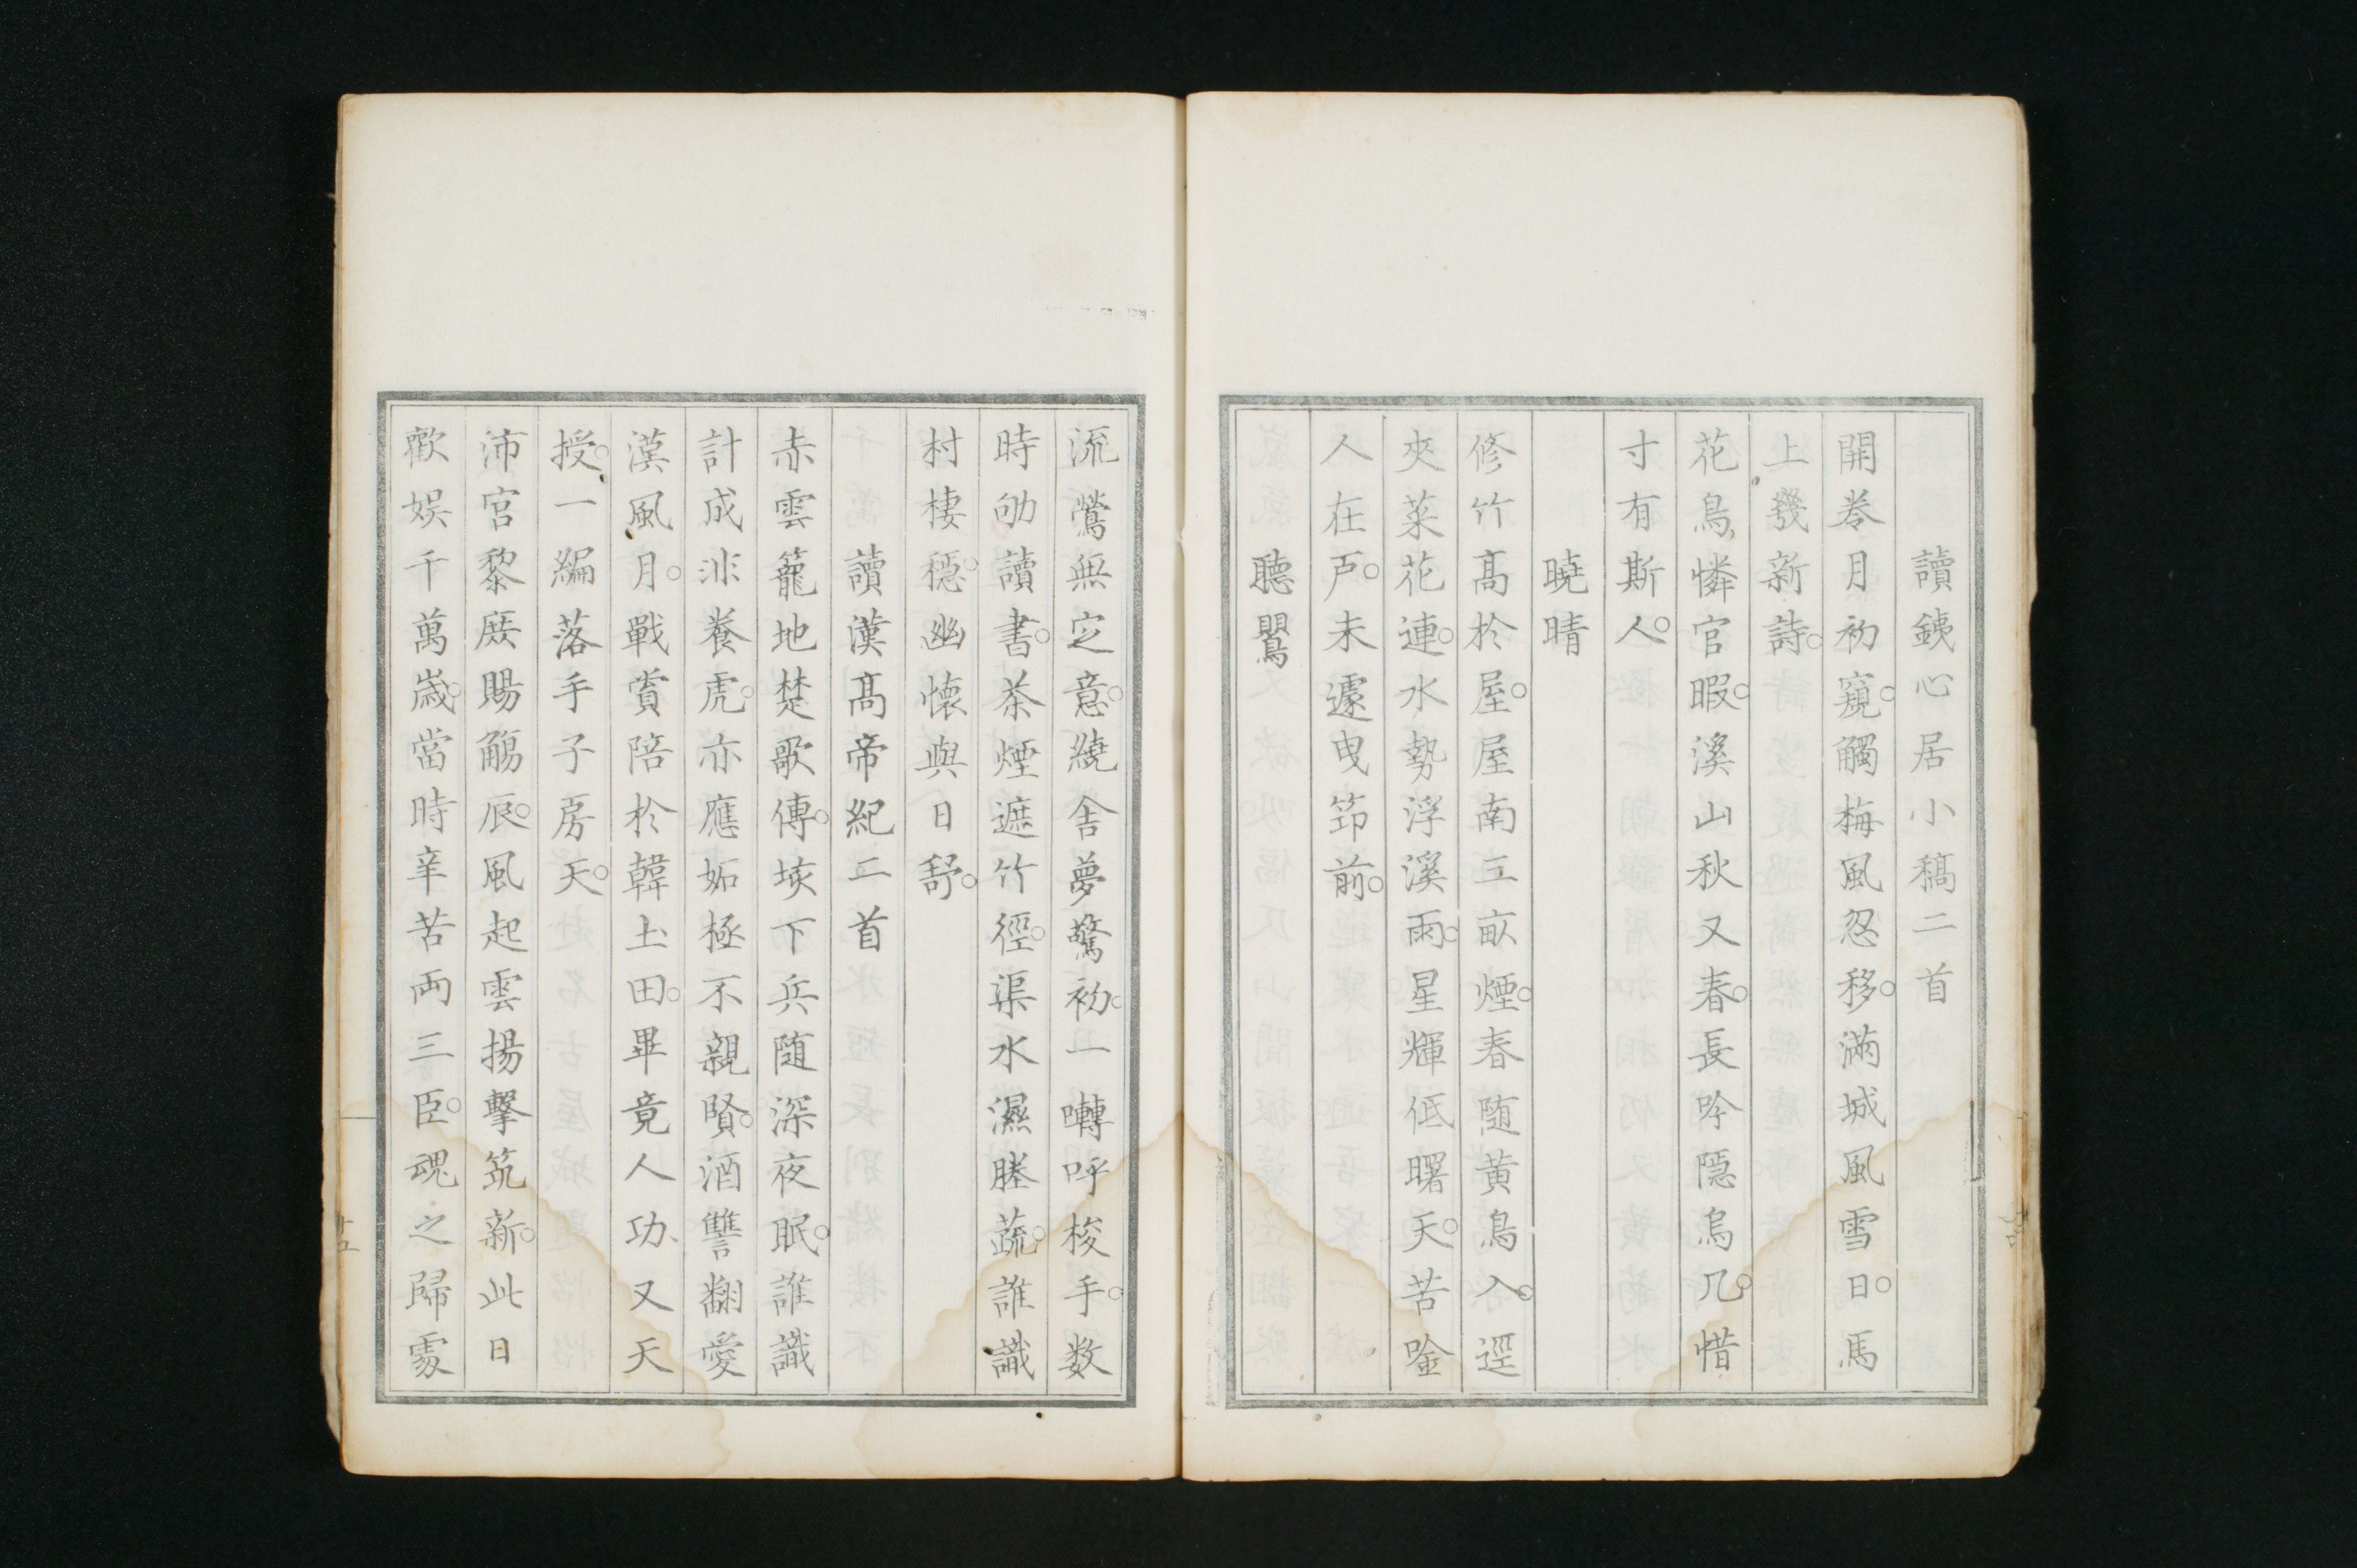 讀銕心居小稿二首
開巻月初窺觸梅風忍移滿城風雪日馬
上發新詩
花鳥憐官暇溪山秋又春長吟隠烏几惜
寸有斯人
曉晴
修竹髙於屋屋南二畝煙春随黄鳥入逕
夾菜花連水勢浮溪雨星輝低曙天苦唫
人在戸未遽曳笻前
聽鸎
流鶯無定意繞舎夢驚初一囀呼梭手数
時劬讀書茶煙遮竹徑渠水濕塍蔬誰識
村棲穏幽懐與日舒
讀漢髙帝紀二首
赤雲籠地楚歌傳垓下兵随深夜眠誰識
計成非養虎亦應妬極不親賢酒讐翻愛
漢風月戰賞陪於韓土田畢竟人功又天
授一編落手子房天
沛宮黎庶賜觴辰風起雲揚擊筑新此日
歡娯千萬歳當時辛苦両三臣魂之歸處